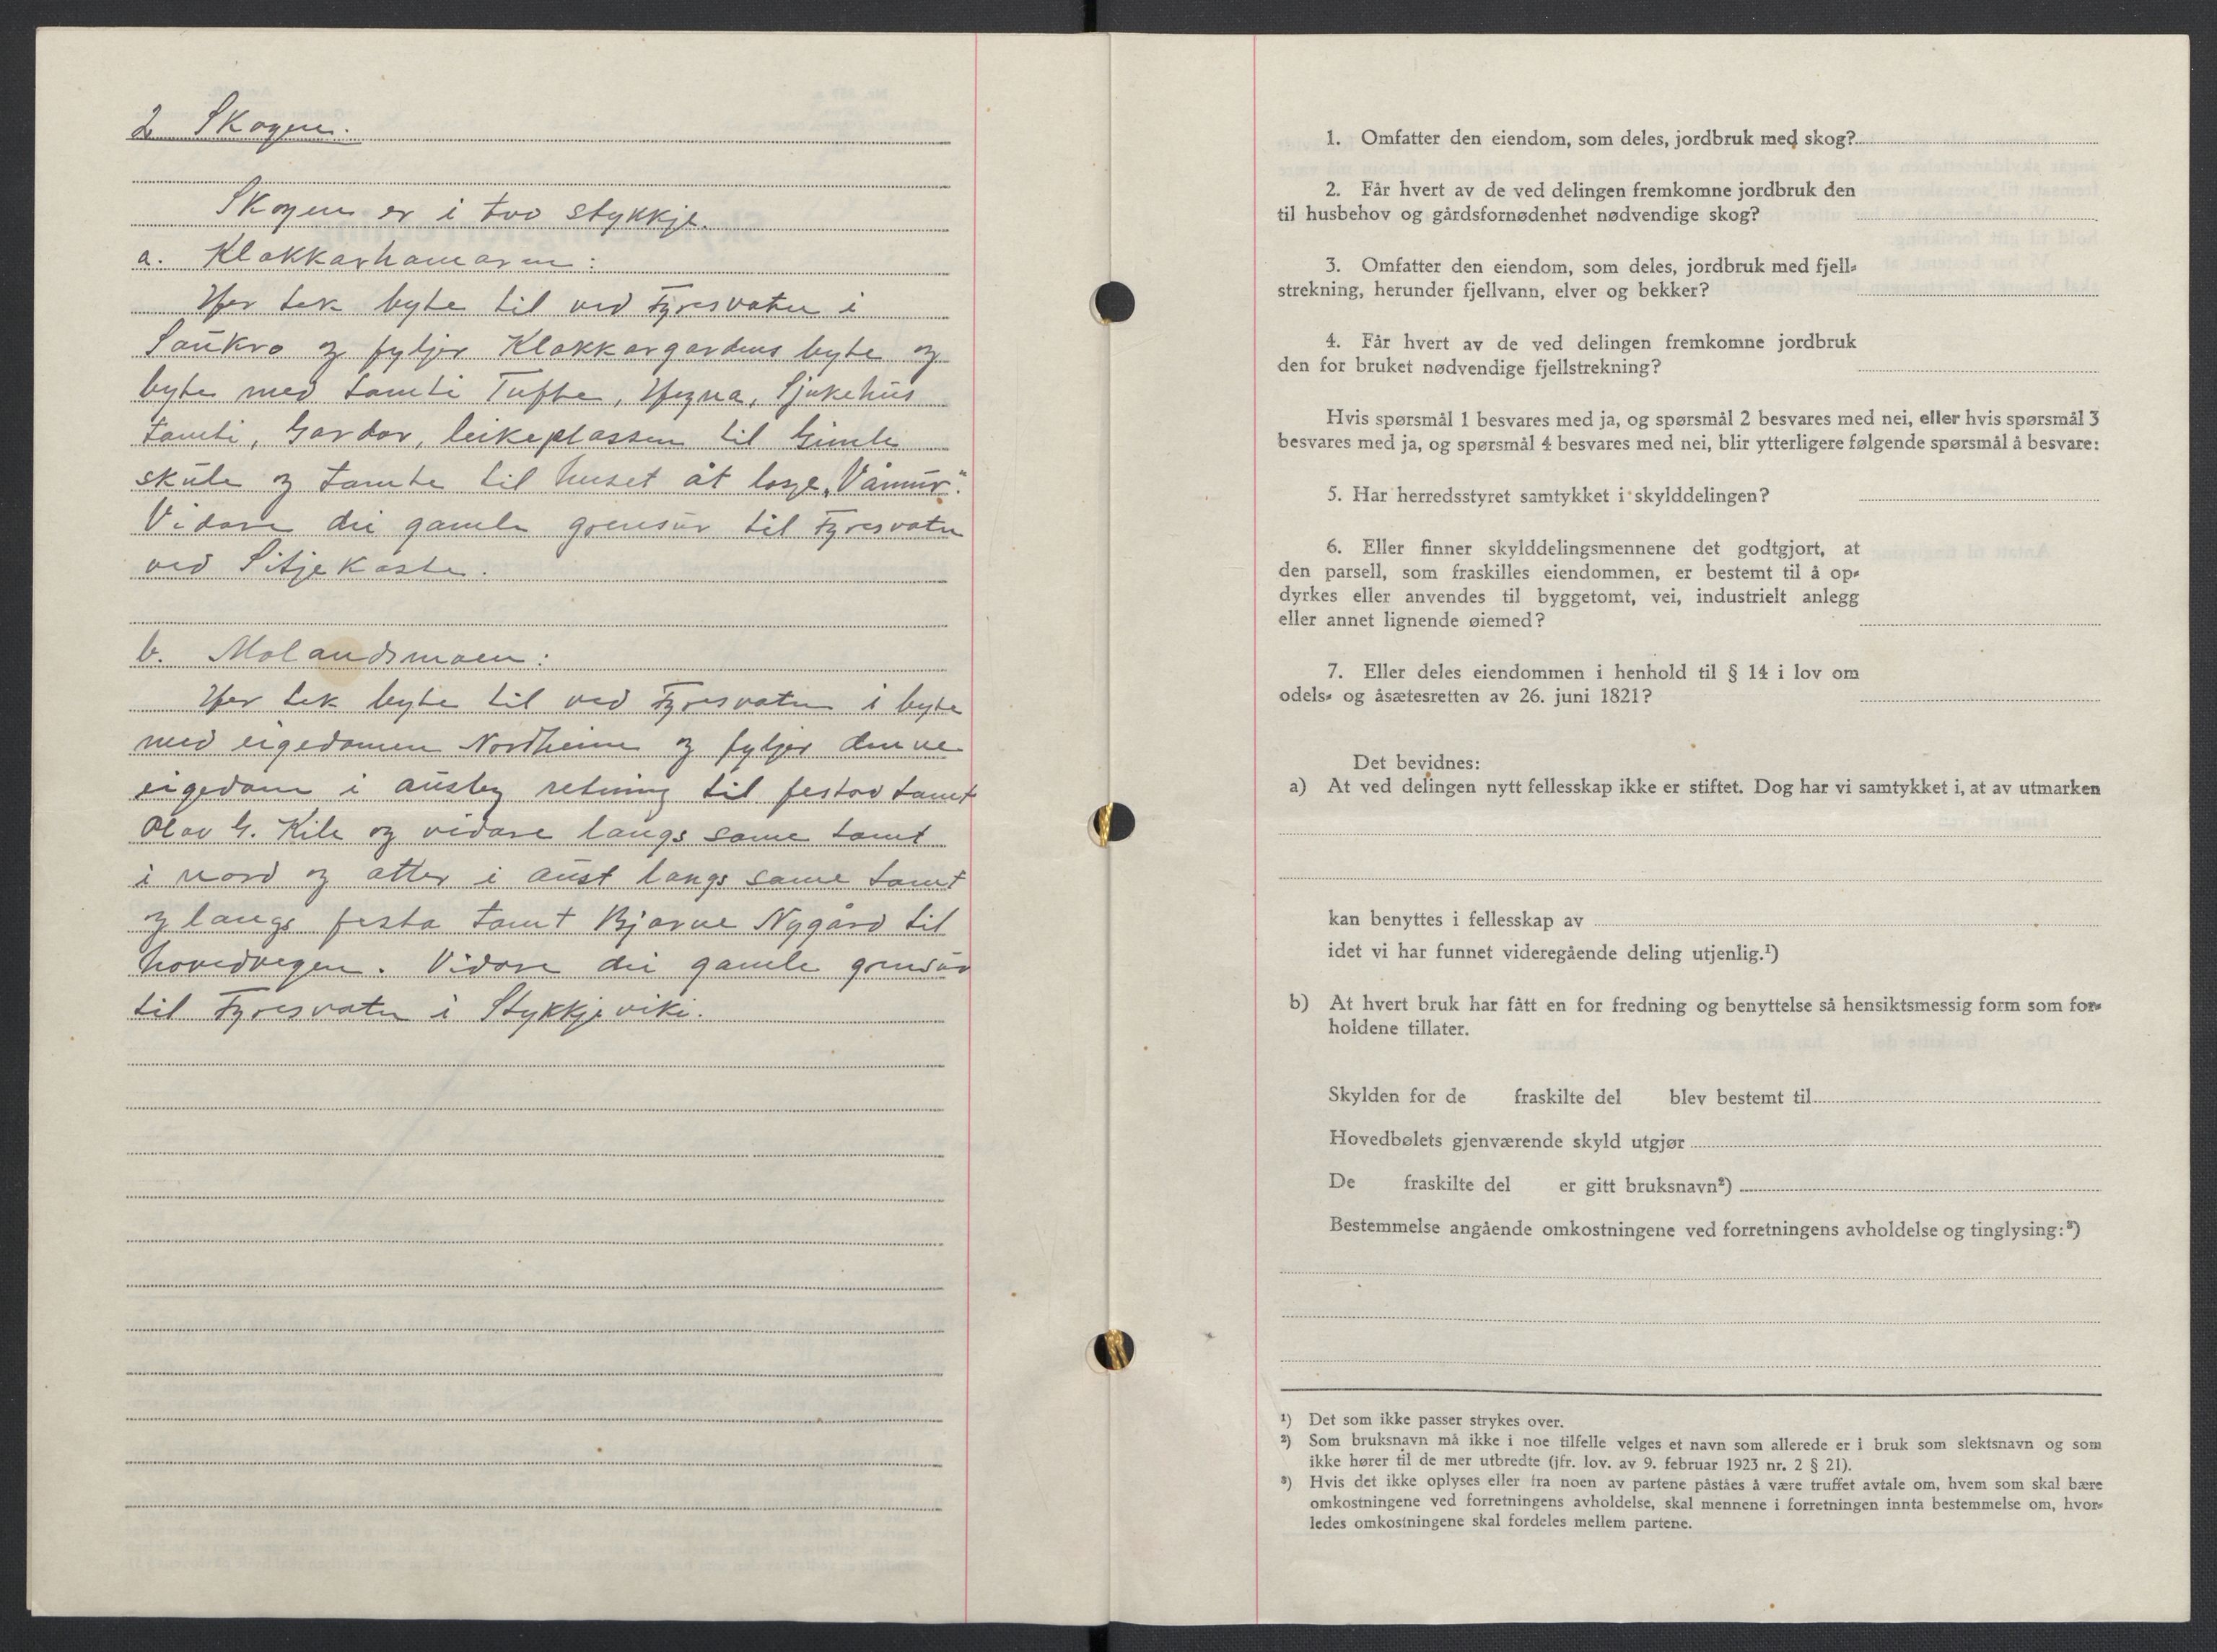 2 Skogen.
Skogen er i tvo stykkje.
a. Klokkarhamaren:
Her tek byte til ved Fyresvatn i
Saukro og fyljer Klokkargardens byte og
byte med tomti Tufte, Hegna, Sjukehus
tomti, Gardar, leikeplassen til Gimle
skule og tomte til huset åt losje „Våmur".
Vidare dei gamle grensur til Fyresvatn
ved Sitjekaste.
b. Molandsmoen:
Her tek byte til ved Fyresvatn i byte
med eigedomen Nordheim og fyljer denne
eigedom i austleg retning til festad tomt
Olav G. Kile og vidare langs same tomt
i nord og atter i aust langs same tomt
og langs festa tomt Bjarne Nygård til
hovedvegen. Vidare dei gamle grensur
til Fyresvatn i Stykkjeviki.
1. Omfatter den eiendom, som deles, jordbruk med skog?
2. Får hvert av de ved delingen fremkomne jordbruk den
til husbehov og gårdsfornødenhet nødvendige skog?
3. Omfatter den eiendom, som deles, jordbruk med fjell-
strekning, herunder fjellvann, elver og bekker?
4. Får hvert av de ved delingen fremkomne jordbruk
den for bruket nødvendige fjellstrekning?
Hvis spørsmål 1 besvares med ja, og spørsmål 2 besvares med nei, eller hvis spørsmål 3
besvares med ja, og spørsmål 4 besvares med nei, blir ytterligere følgende spørsmål å besvare:
5. Har herredsstyret samtykket i skylddelingen?
6. Eller finner skylddelingsmennene det godtgjort, at
den parsell, som fraskilles eiendommen, er bestemt til å op-
dyrkes eller anvendes til byggetomt, vei, industrielt anlegg
eller annet lignende øiemed?
7. Eller deles eiendommen i henhold til § 14 i lov om
odels- og åsætesretten av 26. juni 1821?
Det bevidnes:
a) At ved delingen nytt fellesskap ikke er stiftet. Dog har vi samtykket i, at av utmarken
kan benyttes i fellesskap av
idet vi har funnet videregående deling utjenlig.¹)
b) At hvert bruk har fått en for fredning og benyttelse så hensiktsmessig form som for-
holdene tillater.
Skylden for de fraskilte del blev bestemt til
Hovedbølets gjenværende skyld utgjør
De fraskilte del er gitt bruksnavn²)
Bestemmelse angående omkostningene ved forretningens avholdelse og tinglysing:³)
¹) Det som ikke passer strykes over.
²) Som bruksnavn må ikke i noe tilfelle velges et navn som allerede er i bruk som slektsnavn og som
ikke hører til de mer utbredte (jfr. lov. av 9. februar 1923 nr. 2 § 21).
³) Hvis det ikke oplyses eller fra noen av partene påståes å være truffet avtale om, hvem som skal bære
omkostningene ved forretningens avholdelse, skal mennene i forretningen innta bestemmelse om, hvor-
ledes omkostningene skal fordeles mellem partene.